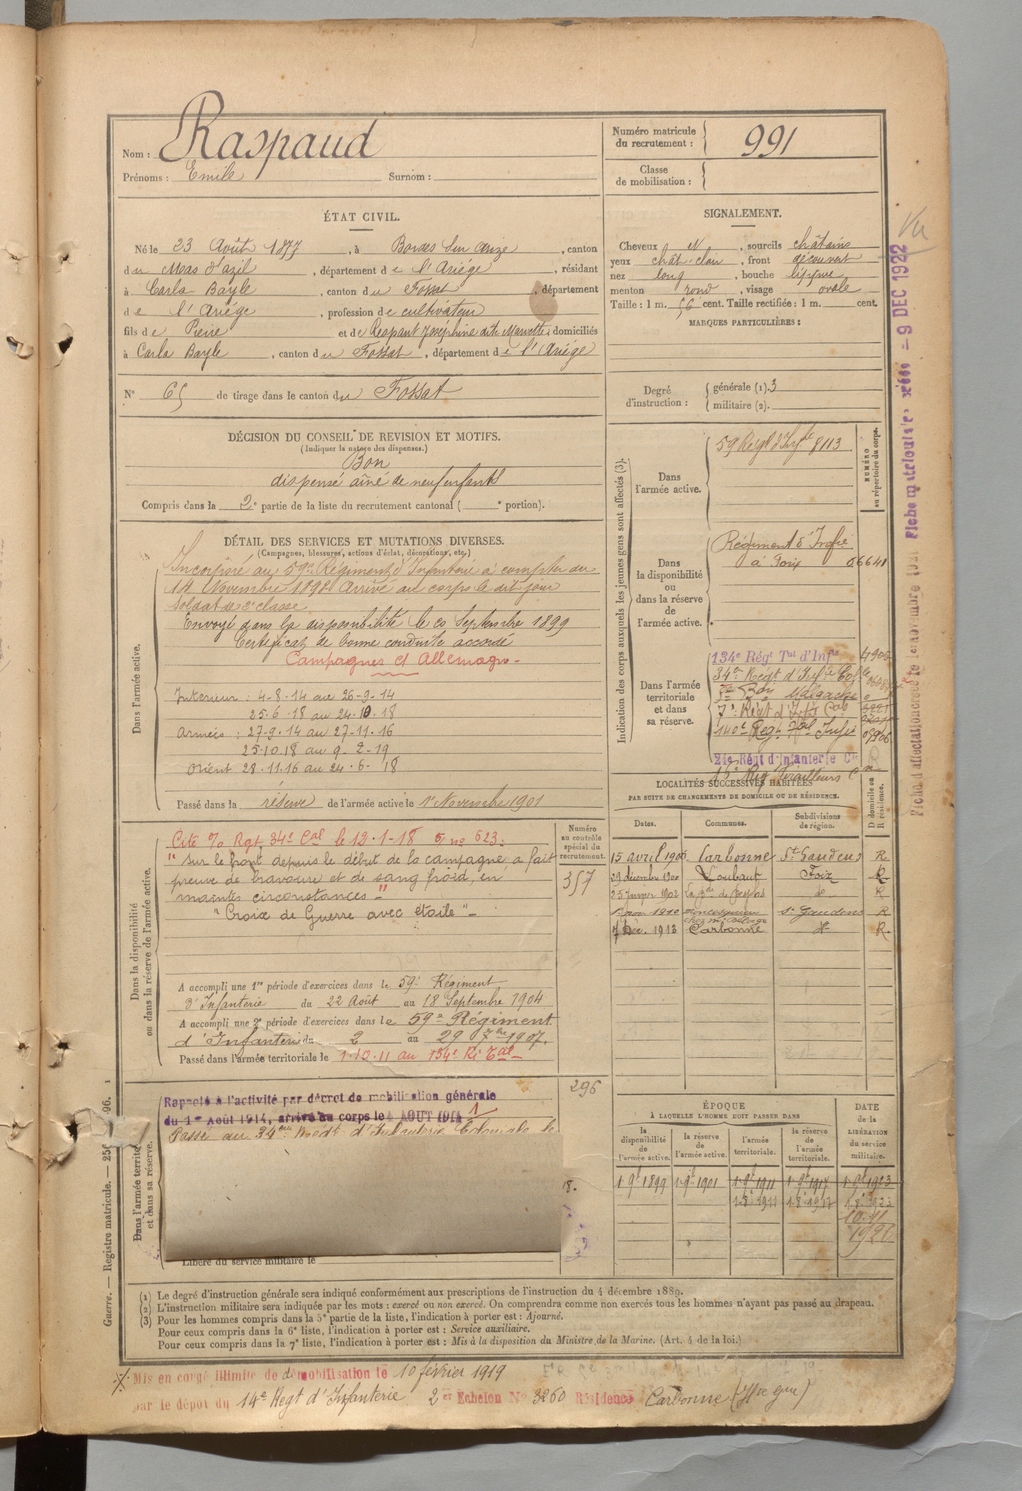 Nom : Raspaud
Prénoms : Emile Surnom :
Numéro matricule du recrutement : 991
Classe de mobilisation :
ÉTAT CIVIL.
Né le 23 Août 1877, à Bordes sur Arize, canton
du Mas d'azil, département de l'Ariége, résidant
à Carla Bayle, canton du Fossat, département
de l'Ariége, profession de cultivateur
fils de Pierre et de Respaut Joséphine dite Marotte, domiciliés
à Carla Bayle, canton du Fossat, département de l'Ariége
N° 65 de tirage dans le canton du Fossat
SIGNALEMENT.
Cheveux N, sourcils châtains
yeux chât-clair, front découvert
nez long, bouche
menton rond, visage ovale
Taille : 1 m. 56 cent. Taille rectifiée : 1 m. cent.
MARQUES PARTICULIÈRES :
Degré d'instruction : générale (1). 3
militaire (2).
DÉCISION DU CONSEIL DE REVISION ET MOTIFS.
(Indiquer la nature des dispenses.)
Bon
dispensé aîné de neuf enfants
Compris dans la 2e partie de la liste du recrutement cantonal ( e portion).
DÉTAIL DES SERVICES ET MUTATIONS DIVERSES.
(Campagnes, blessures, actions d'éclat, décorations, etc.)
Dans l'armée active.
Incorporé au 59e Régiment d'Infanterie à compter du
14 Novembre 1898 Arrivé au corps le dit jour
soldat de 2e classe.
Envoyé dans la disponibilité le 20 Septembre 1899
Certificat de bonne conduite accordé
Campagnes ct Allemagne -
Intérieur : 4-8-14 au 26-9-14
25-6-18 au 24-10-18
Armées : 27-9-14 au 27-11-16
25-10-18 au 9-2-19
Orient 28-11-16 au 24-6-18
Passé dans la réserve de l'armée active le 1er Novembre 1901
Dans la disponibilité ou dans la réserve de l'armée active.
Cité % Rgt 34e Cal le 12-1-18 no 623 :
" sur le front depuis le début de la campagne a fait
preuve de bravoure et de sang froid, en
maintes circonstances "
" Croix de Guerre avec étoile " -
A accompli une 1re période d'exercices dans le 59e Régiment
d'Infanterie du 22 Août au 18 Septembre 1904
A accompli une 2e période d'exercices dans le 59e Régiment
d'Infanterie du 2 au 29 7bre 1907.
Passé dans l'armée territoriale le 1-10-11 au 134e Ri Tal -
Numéro au contrôle spécial du recrutement.
357
296
Dans l'armée territ
et dans sa réserve.
Rappelé à l'activité par décret de mobilisation générale
du 1er Août 1914, arrivé au corps le 4 AOUT 1914
Passé au 34me Regt d'Infanterie Coloniale le
18.
Libéré du service militaire le
Indication des corps auxquels les jeunes gens sont affectés (3).
NUMÉRO au répertoire du corps.
Dans l'armée active.
59 Régt d'Inf 8113
Dans la disponibilité ou dans la réserve de l'armée active.
Régiment d'Infie
à Foix 06641
Dans l'armée territoriale et dans sa réserve.
134e Régt Tal d'Infie
34e Régt d'Infie Cole
7e Régt d'Infie Cal
140e Regt Tal Infie
21e Régt d'Infanterie Cle
Tirailleurs
LOCALITÉS SUCCESSIVES HABITÉES
PAR SUITE DE CHANGEMENTS DE DOMICILE OU DE RÉSIDENCE.
Dates. Communes. Subdivisions de région. D domicile ou R résidence.
15 avril 1900 Carbonne St Gaudens R
29 décembre 1900 Loubaut Foix R
25 Janvier 1902 R
1910 St Gaudens R
7 Déc. 1913 Carbonne R
ÉPOQUE
À LAQUELLE L'HOMME DOIT PASSER DANS
DATE de la LIBÉRATION du service militaire.
la disponibilité de l'armée active. la réserve de l'armée active. l'armée territoriale. la réserve de l'armée territoriale.
1 9bre 1899 1 9bre 1901 1 9bre 1911 1 9bre 1917 1 9bre 1923
(1) Le degré d'instruction générale sera indiqué conformément aux prescriptions de l'instruction du 4 décembre 1889.
(2) L'instruction militaire sera indiquée par les mots : exercé ou non exercé. On comprendra comme non exercés tous les hommes n'ayant pas passé au drapeau.
(3) Pour les hommes compris dans la 5e partie de la liste, l'indication à porter est : Ajourné.
Pour ceux compris dans la 6e liste, l'indication à porter est : Service auxiliaire.
Pour ceux compris dans la 7e liste, l'indication à porter est : Mis à la disposition du Ministre de la Marine. (Art. 4 de la loi.)
Mis en congé illimité de démobilisation le 10 février 1919
par le dépôt du 14e Regt d'Infanterie 2e Echelon No 3260 Résidence Carbonne (Hte Gne)
Guerre. — Registre matricule. — 96.
Vu
9 DEC 1922